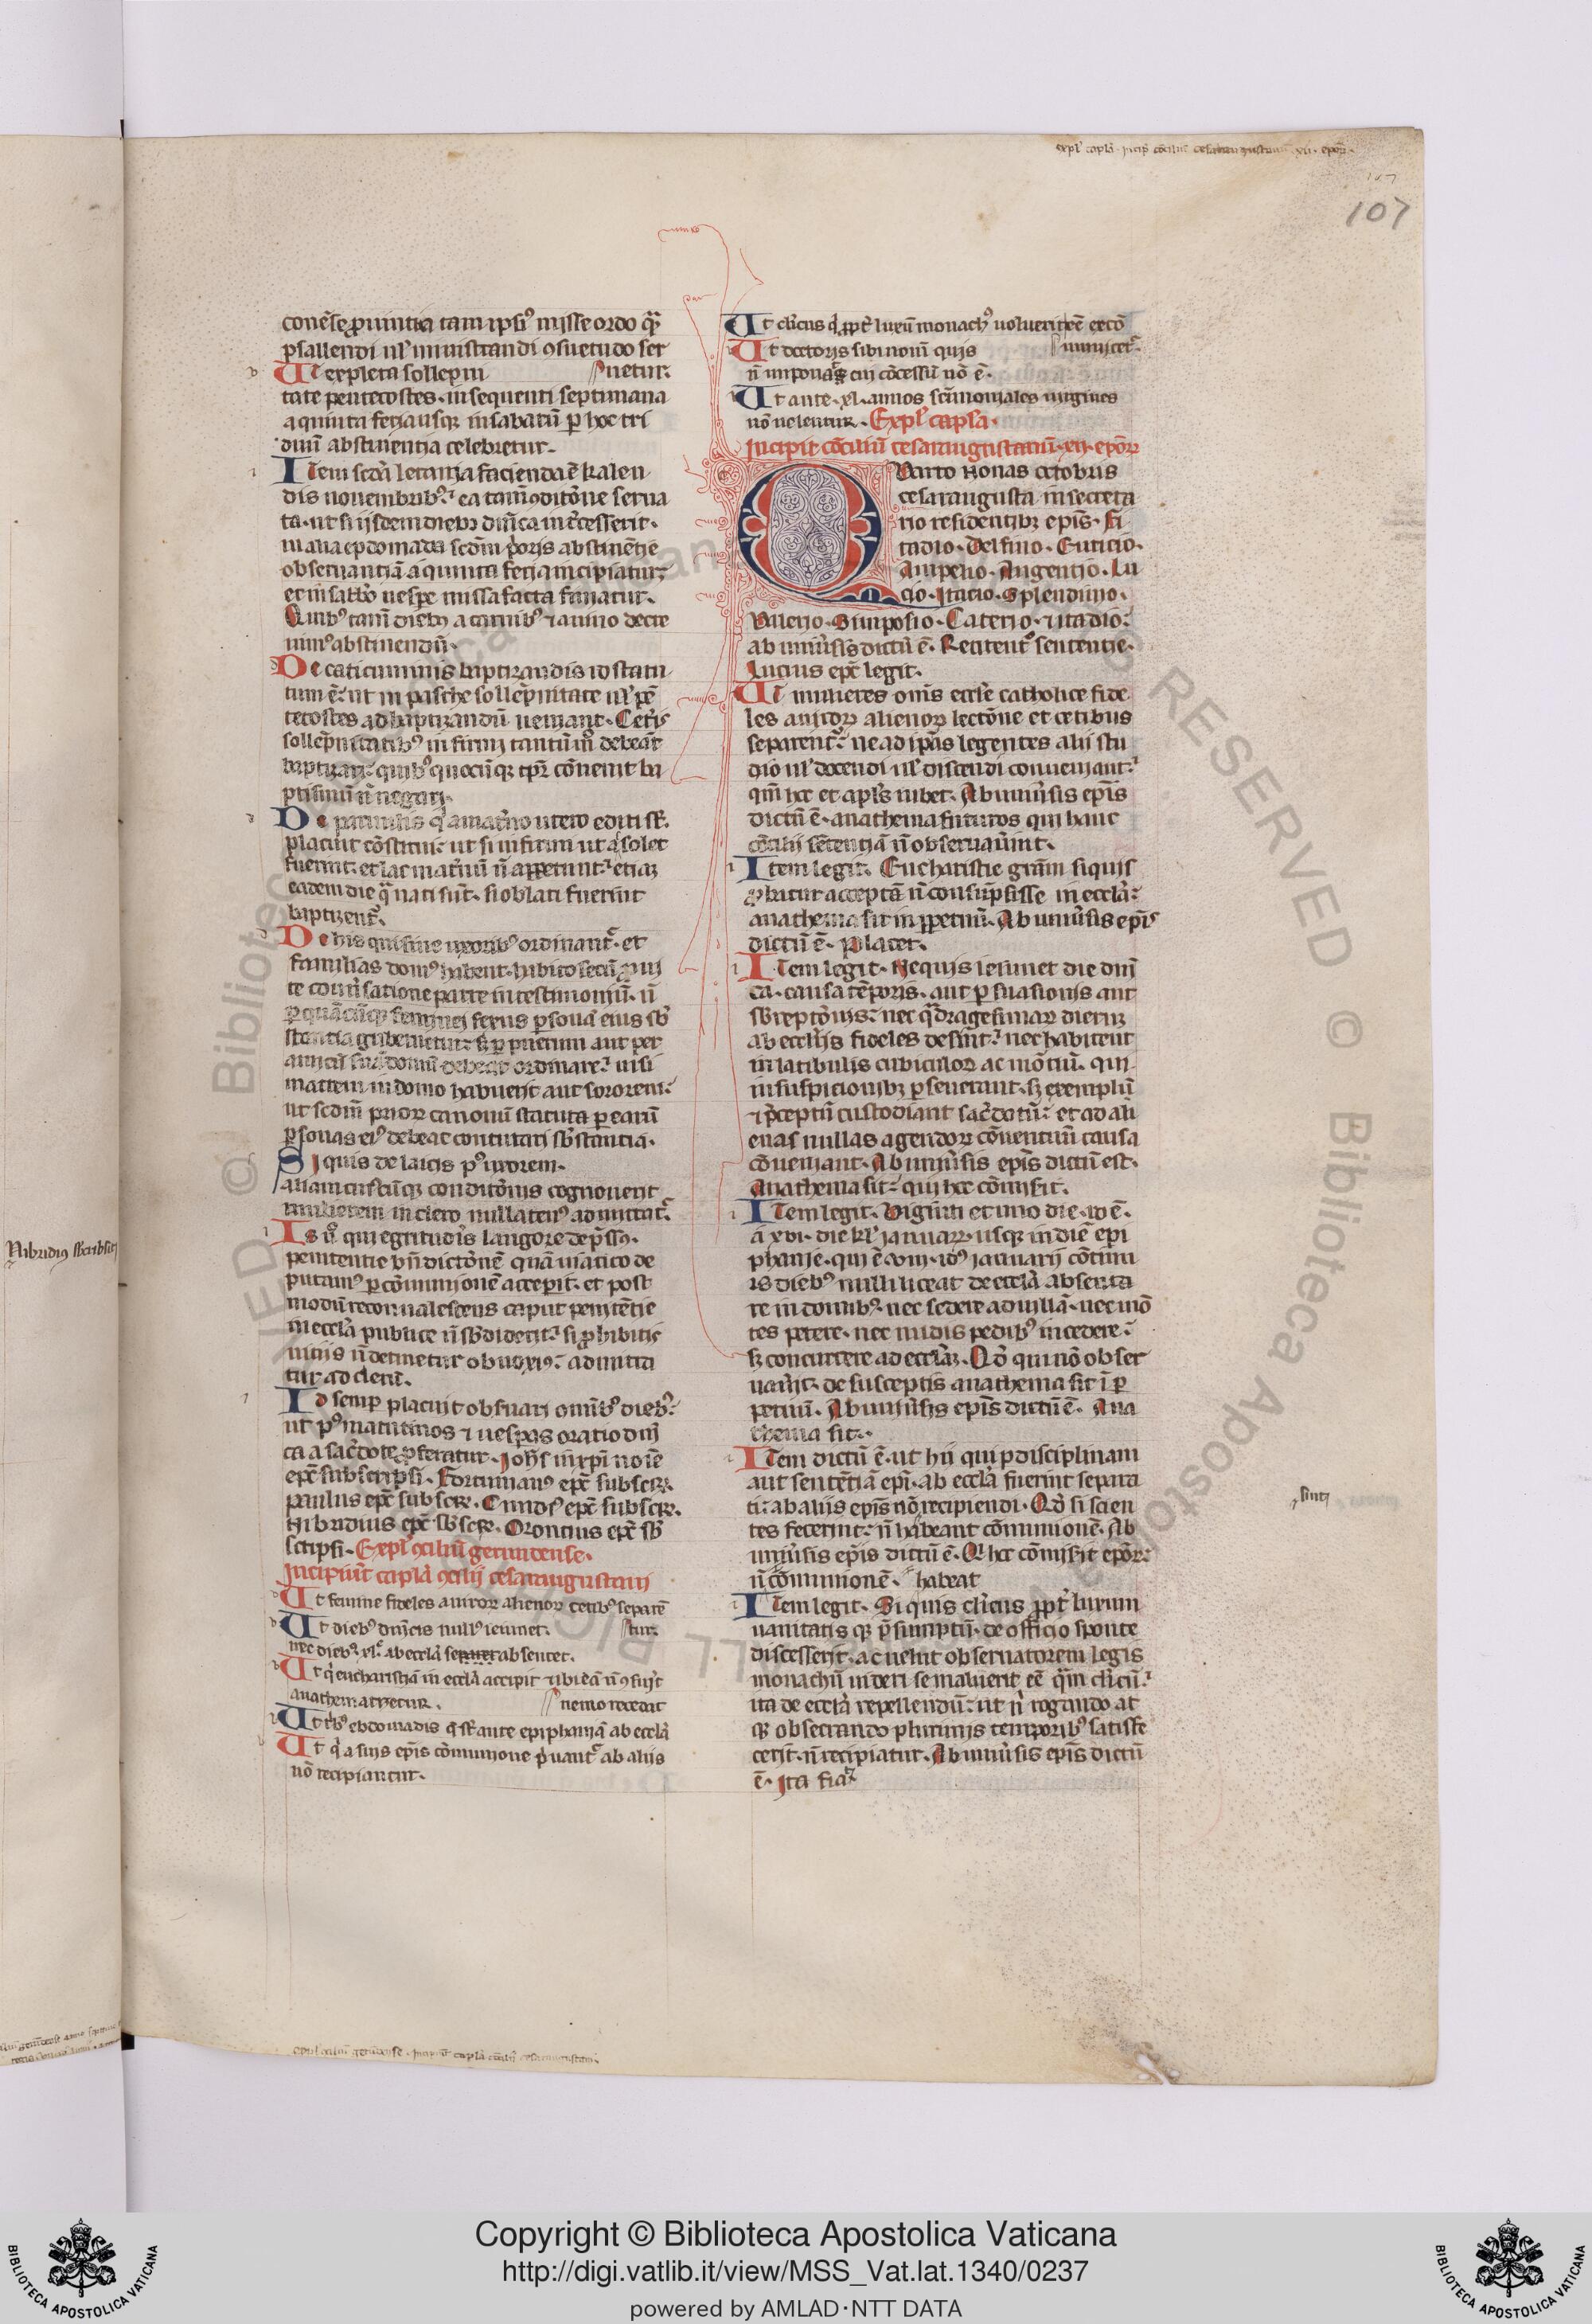 expl' capła. incip̄ cōciliū cesaraugustanū .xii. epōꝝ.
107
107
conēse ꝓuintia tam ipsi⁹ misse ordo qͣꝫ
psallendi ul' ministrandi ꝯsuetudo ser
uetur.
Ut expleta sollepni
tate pentecostes. in sequenti septimana
a quinta feria usqꝫ in sabatū p̱ hoc tri
duū abstinentia celebretur.
Item scd̄a letania facienda ē kalen
dis nouembrib⁹. ea tam̄ ꝯditōne serua
ta. ut si ijsdem diebꝫ dn̄ica int̄cesserit.
in alia epdomada scd̄m p̄oris abstinētie
obseruantiā a quinta feria incipiatur.
et in sabb̄o uespe missa facta finatur.
Quib⁹ tam̄ dieb⁹ a carnib⁹ ⁊ a uino decre
uim⁹ abstinendū.
De caticuminis baptizandis id statu
tum ē. ut in pasche sollēpnitate ul' pē
tecostes ad baptizandū ueniant. Cet̄is
sollēpnitatib⁹ infirmi tantūm̄ debeāt
baptizari. quib⁹ quocūqꝫ tp̄r cōuenit ba
ptismū n̄ negari.
De paruulis q̄ a mat̄no utero editi st̄.
placuit cōstitui. ut si infirmi ut asolet
fuerint. et lac mat̄nū n̄ appetunt. etiaꝫ
eadem die qͣ nati sūt. si oblati fuerint
baptizent̄.
De his qui sine uxorib⁹ ordinant̄. et
familias dom⁹ habent. habito secū ꝓ uij
te conūsatione patre in testimoniū. n̄
p̱ quācūqꝫ feminei sexus p̱sonā eius sb̄
stantia gubernetur. s̄ p̱ puerum aut per
amicū suā domū debeat ordinare. nisi
matrem in domo habuerit aut sororem.
ut scdm̄ prioꝝ canonū statuta p̱ earū
p̱sonas ei⁹ debeat contutari sb̄stantia.
Si quis de laicis p⁹ uxorem.
aliam cuiscūqꝫ conditōnis cognouerit
mulierem in clero nullaten⁹ admittat̄.
Is u̾o qui egritudīs langore dep̄ss⁹.
penitentie bn̄dictōnē quā uiatico de
putam⁹ p̱ cōmunionē acceperit. et post
modū reconualescens caput penitētie
in eccl'a publice n̄ sb̄diderit. si ꝓhibitis
uitiis n̄ detinetur obnoxi⁹. admitta
tur ad clerū.
Id semp̱ placuit obs̄uari omīb⁹ dieb⁹.
ut p⁹ matutinos ⁊ uesp̱as oratio dn̄i
ca a sac̄dote ꝓferatur. Joh̄s in xp̄i noīe
ep̄c subscripsi. Fortunian⁹ ep̄c subscr.
Paulus ep̄c subscr. Cinids⁹ ep̄c subscr.
Nibridius ep̄c sb̄scr. Orontius ep̄c sb̄
scripsi. Expl' ꝯciliū gerundense.
Incipiūt capl'a ꝯcilij cesaraugustani
Ut femine fideles a uiroꝝ alienoꝝ cetib⁹ separē
tur.
Ut dieb⁹ dn̄icis null⁹ ieiunet.
nec dieb⁹ .xl͛. ab eccl'a absentet.
Ut q̄ eucharistiā in eccl'a accipit ⁊ ibi eā n̄ ꝯsūp̄it
anathematizetur.
nemo recedat
Ut t̄b⁹ ebdomadis q̄ st̄ ante epiphaniā ab eccl'a
Ut q̄ a suis ep̄is cōmunione p̄uant̄ ab aliis
nō recipiantur.
Ut cl̄icus q̄ ꝓpt̄ luxū monach⁹ uoluerit eē exco
municet̄.
Ut doctoris sibi nom̄ quis
n̄ imponat cui cōcessū nō ē.
Ut ante .xl. annos sc̄imoniales uirgines
nō uelentur. Expl' capl'a.
Incipit cōciliū cesaraugustanū .xij. epōꝝ
Quarto nonas octobris
cesaraugusta in secreta
rio residentibꝫ ep̄is. fi
tadio. Delfino. Euticio.
Ampelio. Augentio. Lu
cio. Itacio. Splendinio.
Valerio. Simposio. Caterio. ⁊ ita dio.
ab uniūsis dictū ē. Recitent̄ sententie.
Lucius ep̄c legit.
Ut mulieres om̄is eccl'e catholice fide
les a uiroꝝ alienoꝝ lectōne et cetibus
separent̄. ne ad ip̄as legentes alii stu
dio ul' docendi ul' discendi conueniant.
qm̄ hec et apl's iubet. Ab uniūsis ep̄is
dictū ē. anathema futuros qui hanc
cōcilii sētentiā n̄ obseruau̾int.
Item legit. Eucharistie grām siquis
ꝓbatur acceptā n̄ consūpsisse in eccl'a.
anathema sit in ꝑpetuū. Ab uniūsis ep̄is
dictū ē. Placet.
Item legit. Nequis ieiunet die dn̄i
ca. causa tēporis. aut p̱suasionis aut
sb̄reptōnis. nec qͣdragesimaꝝ dierꝫ
ab eccl'iis fideles desint. nec habitent
in latibulis cubiculoꝝ ac mōtiū. qui
in suspicionibꝫ p̱seuerant. sꝫ exemplū
⁊ p̄ceptū custodiant sac̄dotū. et ad ali
enas uillas agendoꝝ cōuentuū causa
cōueniant. Ab uniūsis ep̄is dictū est.
Anathema sit. qui hec cōmis̄it.
Item legit. Viginti et uno die. id ē.
a xvi. die kl' januaꝝ. usqꝫ in diē epi
phanie. qui ē viii. id⁹ januarii cōtinu
is dieb⁹ nulli liceat de eccl'a absenta
re in domib⁹. nec sedere ad uillā. nec mō
tes petere. nec nudis pedib⁹ incedere.
sꝫ concurrere ad eccl'aꝫ. Qd̄ qui nō obser
uau̾it. de susceptis anathema sit ī p̱
petuū. Ab uniūsis ep̄is dictū ē. Ana
thema sit.
Item dictū ē. ut hii qui p̱ disciplinam
aut sentētiā ep̄i. ab eccl'a fuerint separa
ti. ab aliis ep̄is nō recipiendi. Qd̄ si scien
tes fecerint. n̄ habeant cōmunionē. Ab
uniūsis ep̄is dictū ē. Q̄ hec cōmis̄it epōꝝ.
n̄ cōmunionē. habeat
Item legit. Si quis cl̄icus ꝓpt̄ luxum
uanitatis qꝫ p̄sumptū. de officio sponte
discesserit. ac uelut obseruatorem legis
monachū uideri se maluerit eē qͣm cl̄icū.
ita de eccl'a repellendū. ut n̄ rogando at
qꝫ obsecrando plurimis temporib⁹ satisfe
cerit. n̄ recipiatur. Ab uniūsis ep̄is dictū
ē. Ita fiat.
sint
Nibridi⁹ sb̄scribsit
expl' ꝯciliū gerūdense. Incipiūt capl'a cōcilij cesaraugustani.
Copyright © Biblioteca Apostolica Vaticana
http://digi.vatlib.it/view/MSS_Vat.lat.1340/0237
powered by AMLAD·NTT DATA
BIBLIOTECA APOSTOLICA VATICANA
BIBLIOTECA APOSTOLICA VATICANA